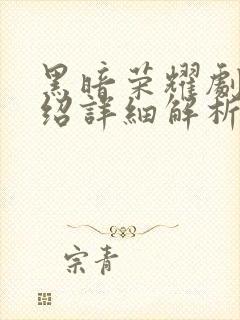 黑暗荣耀劇
绍詳細解析
宗青